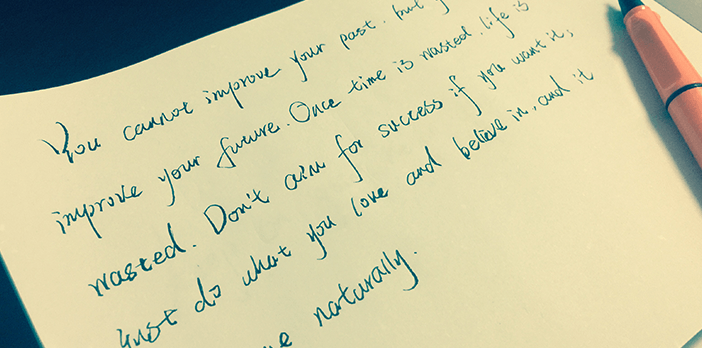 You cannot improve your past, but
improve your future. Once time is wasted, life is
wasted. Don't aim for success if you want it;
just do what you love and believe in, and it
naturally.